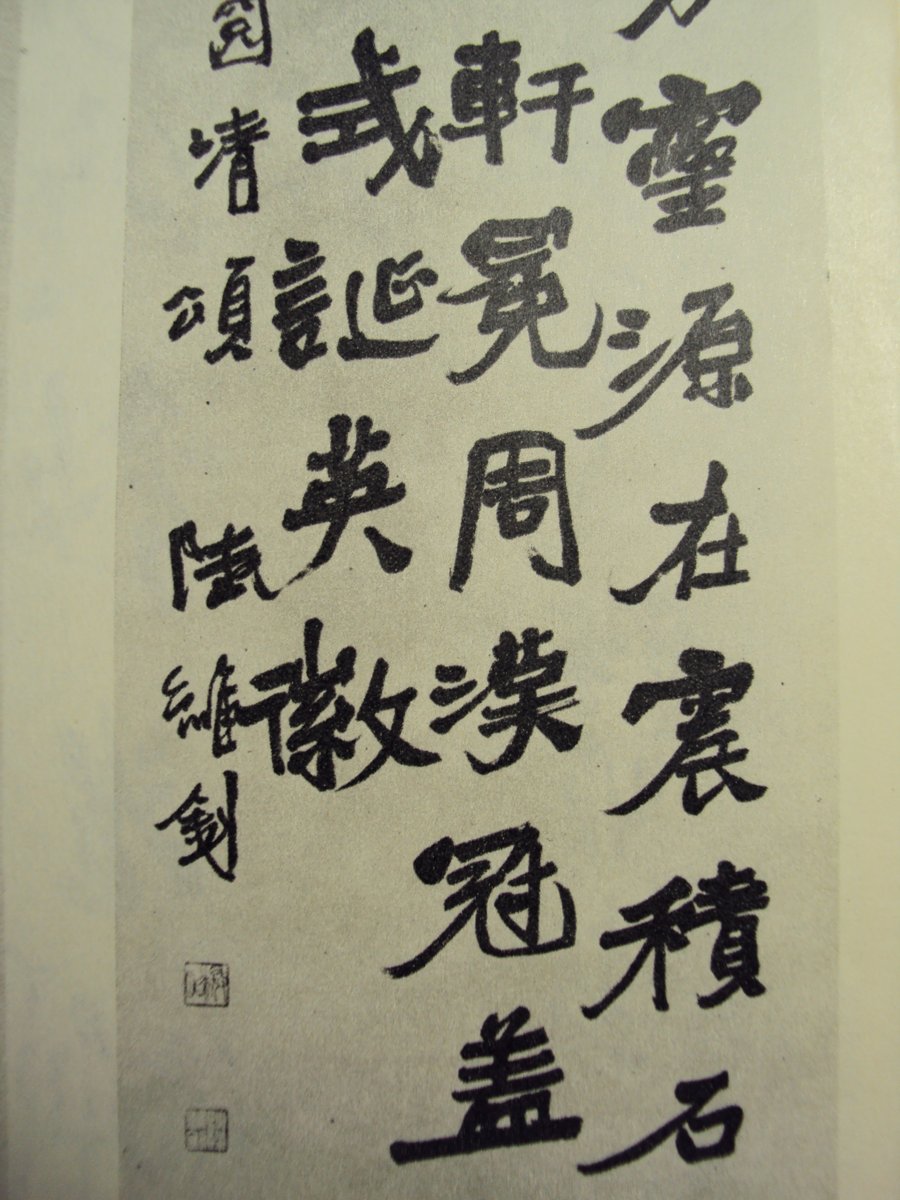 靈源在震積石
軒冕周漢冠盖
式誕英徽
清頌 陸維釗